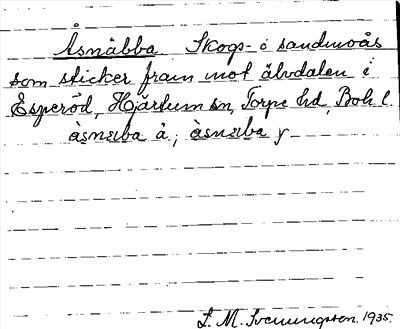 Åsnäbba Skogs- o sandmoås
som sticker fram mot älvdalen i
Esperöd, Hjärtum sn, Torpe hd, Boh l.
àsnɛba å, àsnɛba y
L. M. Svenungsson. 1935.